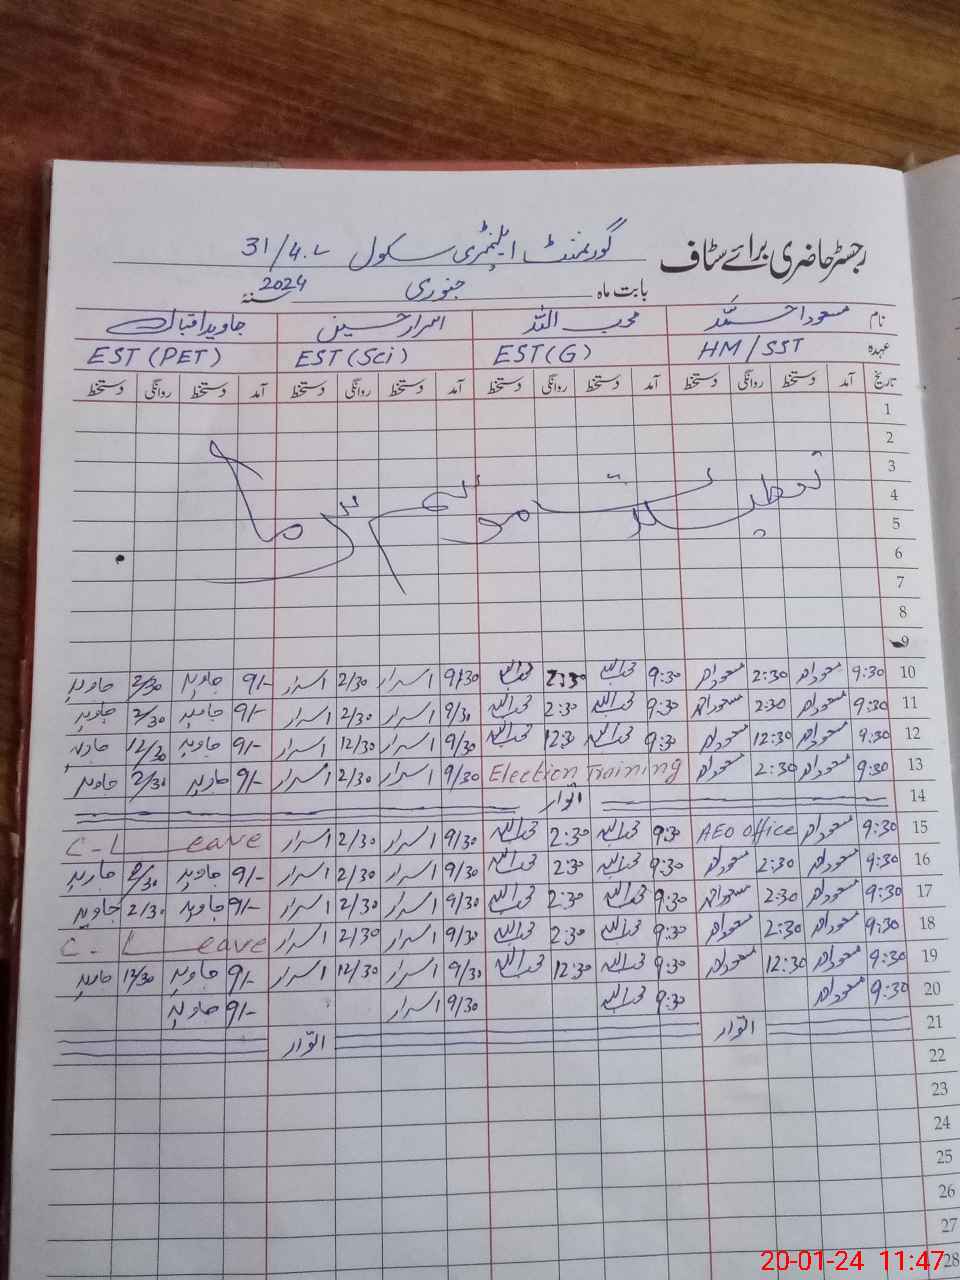 رجسٹر حاضری برائے سٹاف گورنمنٹ ایلیمنٹری سکول 31/4.L
بابت ماہ جنوری 2024 سنہ
نام مسعود احمد محب اللہ اسرار حسین جاوید اقبال
عہدہ HM/SST EST(G) EST(Sci) EST(PET)
تاریخ آمد دستخط روانگی دستخط آمد دستخط روانگی دستخط آمد دستخط روانگی دستخط آمد دستخط روانگی دستخط
1
2
3
تعطیلات موسم سرما
4
5
6
7
8
9
10 9:30 مسعود احمد 2:30 مسعود احمد 9:30 محب اللہ 2:30 محب اللہ 9/30 اسرار 2/30 اسرار 9/- جاوید 2/30 جاوید
11 9:30 مسعود احمد 2:30 مسعود احمد 9:30 محب اللہ 2:30 محب اللہ 9/30 اسرار 2/30 اسرار 9/- جاوید 2/30 جاوید
12 9:30 مسعود احمد 12:30 مسعود احمد 9:30 محب اللہ 12:30 محب اللہ 9/30 اسرار 12/30 اسرار 9/- جاوید 12/30 جاوید
13 9:30 مسعود احمد 2:30 مسعود احمد Election Training 9/30 اسرار 2/30 اسرار 9/- جاوید 2/30 جاوید
14 اتوار
15 9:30 مسعود احمد AEO office 9:30 محب اللہ 2:30 محب اللہ 9/30 اسرار 2/30 اسرار C-Leave
16 9:30 مسعود احمد 2:30 مسعود احمد 9:30 محب اللہ 2:30 محب اللہ 9/30 اسرار 2/30 اسرار 9/- جاوید 2/30 جاوید
17 9:30 مسعود احمد 2:30 مسعود احمد 9:30 محب اللہ 2:30 محب اللہ 9/30 اسرار 2/30 اسرار 9/- جاوید 2/30 جاوید
18 9:30 مسعود احمد 2:30 مسعود احمد 9:30 محب اللہ 2:30 محب اللہ 9/30 اسرار 2/30 اسرار C-Leave
19 9:30 مسعود احمد 12:30 مسعود احمد 9:30 محب اللہ 12:30 محب اللہ 9/30 اسرار 12/30 اسرار 9/- جاوید 12/30 جاوید
20 9:30 مسعود احمد 9:30 محب اللہ 9/30 اسرار 9/- جاوید
21 اتوار اتوار
22
23
24
25
26
27
28
20-01-24 11:47